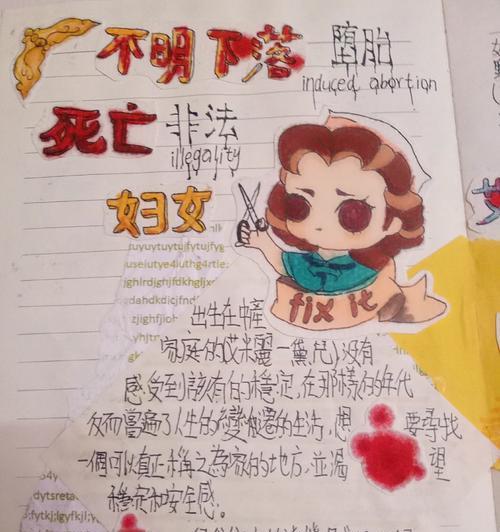 不明下落 堕胎
induced abortion
死亡 非法
illegality
妇女
tuyuytuytujfytujfyg
useiutye4iuthg4rtle;
jghlrdjghjfdkhgljxd
dahdkdicjfnd
zjighfjioh
yhjtru
fix it
出生在中產
家庭的艾米麗一黛兒)沒有
感受到該有的穩定，在那樣的年代
反而嘗遍了人生的變遷的生活，想 要尋找
一個可以真正稱之為家的地方，並渴 望
穩定和安全感。
p4y
dytsreta
;fytkj;lgyfkjl;